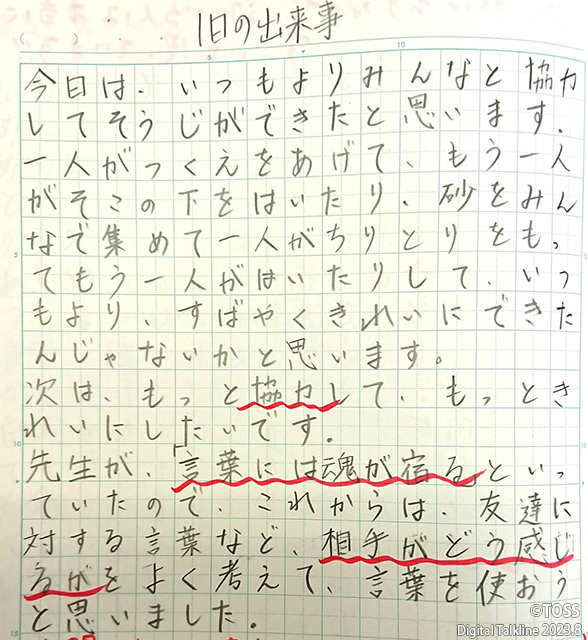 1日の出来事
今日は、いつもよりみんなと協力
してそうじができたと思います。
一人がつくえをあげて、もう一人
がそこの下をはいたり、砂をみん
なで集めて一人がちりとりをもっ
てもう一人がはいたりして、いつ
もより、すばやくきれいにできた
んじゃないかと思います。
次は、もっと協力して、もっとき
れいにしたいです。
先生が、「言葉には魂が宿るといっ
ていたので、これからは、友達に
対する言葉など、相手がどう感じ
るがをよく考えて、言葉を使おう
と思いました。
©TOSS
DigitalTalkline 2023.8